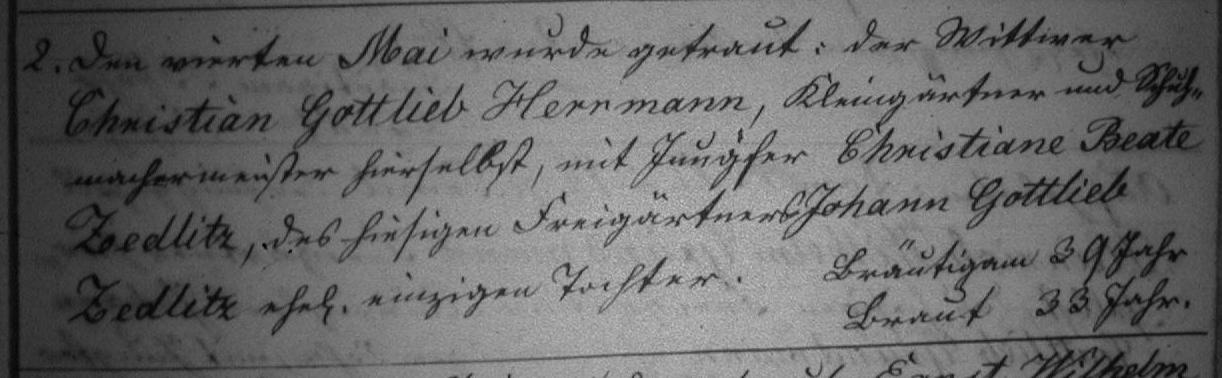 2. Den vierten Mai wurde getraut: der Wittwer
Christian Gottlieb Herrmann, Kleingärtner und Schuh-
machermeister hierselbst, mit Jungfer Christiane Beate
Zedlitz, des hiesigen Freigärtners Johann Gottlieb
Zedlitz ehel. einzigen Tochter. Bräutigam 39 Jahr
Braut 33 Jahr.
Ernst Wilhelm